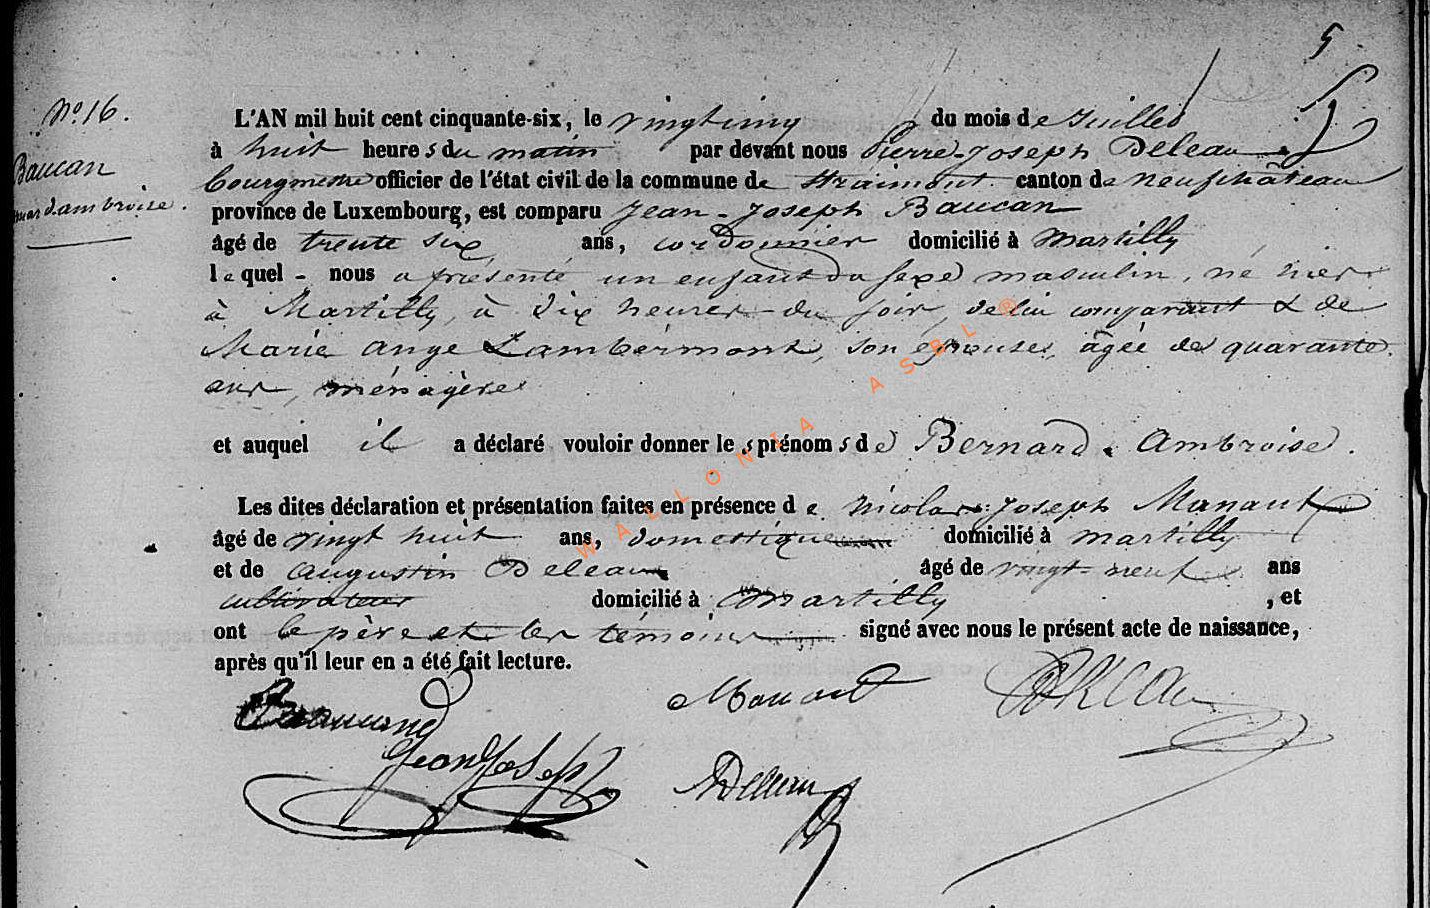 5
N.° 16.
L'AN mil huit cent cinquante-six, le vingt cinq du mois de Juillet
à huit heures du matin par devant nous Pierre-Joseph Deleau
Baucan
bourgmestre officier de l'état civil de la commune de Straimont canton de neufchâteau
nard ambroise.
province de Luxembourg, est comparu Jean-Joseph Baucan
âgé de trente six ans, cordonnier domicilié à Martilly
lequel - nous a présenté un enfant du sexe masculin, né hier
à Martilly, à dix heures du soir, de lui comparant & de
Marie Ange Lambermont, son épouse, âgée de quarante
ans, ménagère
et auquel il a déclaré vouloir donner les prénoms de Bernard Ambroise.
Les dites déclaration et présentation faites en présence de Nicolas-Joseph Manaut
âgé de vingt huit ans, domestique domicilié à martilly
et de Augustin Deleau âgé de vingt-neuf ans
cultivateur domicilié à Martilly, et
ont le père et les témoins signé avec nous le présent acte de naissance,
après qu'il leur en a été fait lecture.
Manaut
Jean Joseph
ADeleau
WALLONIA ASBL ®